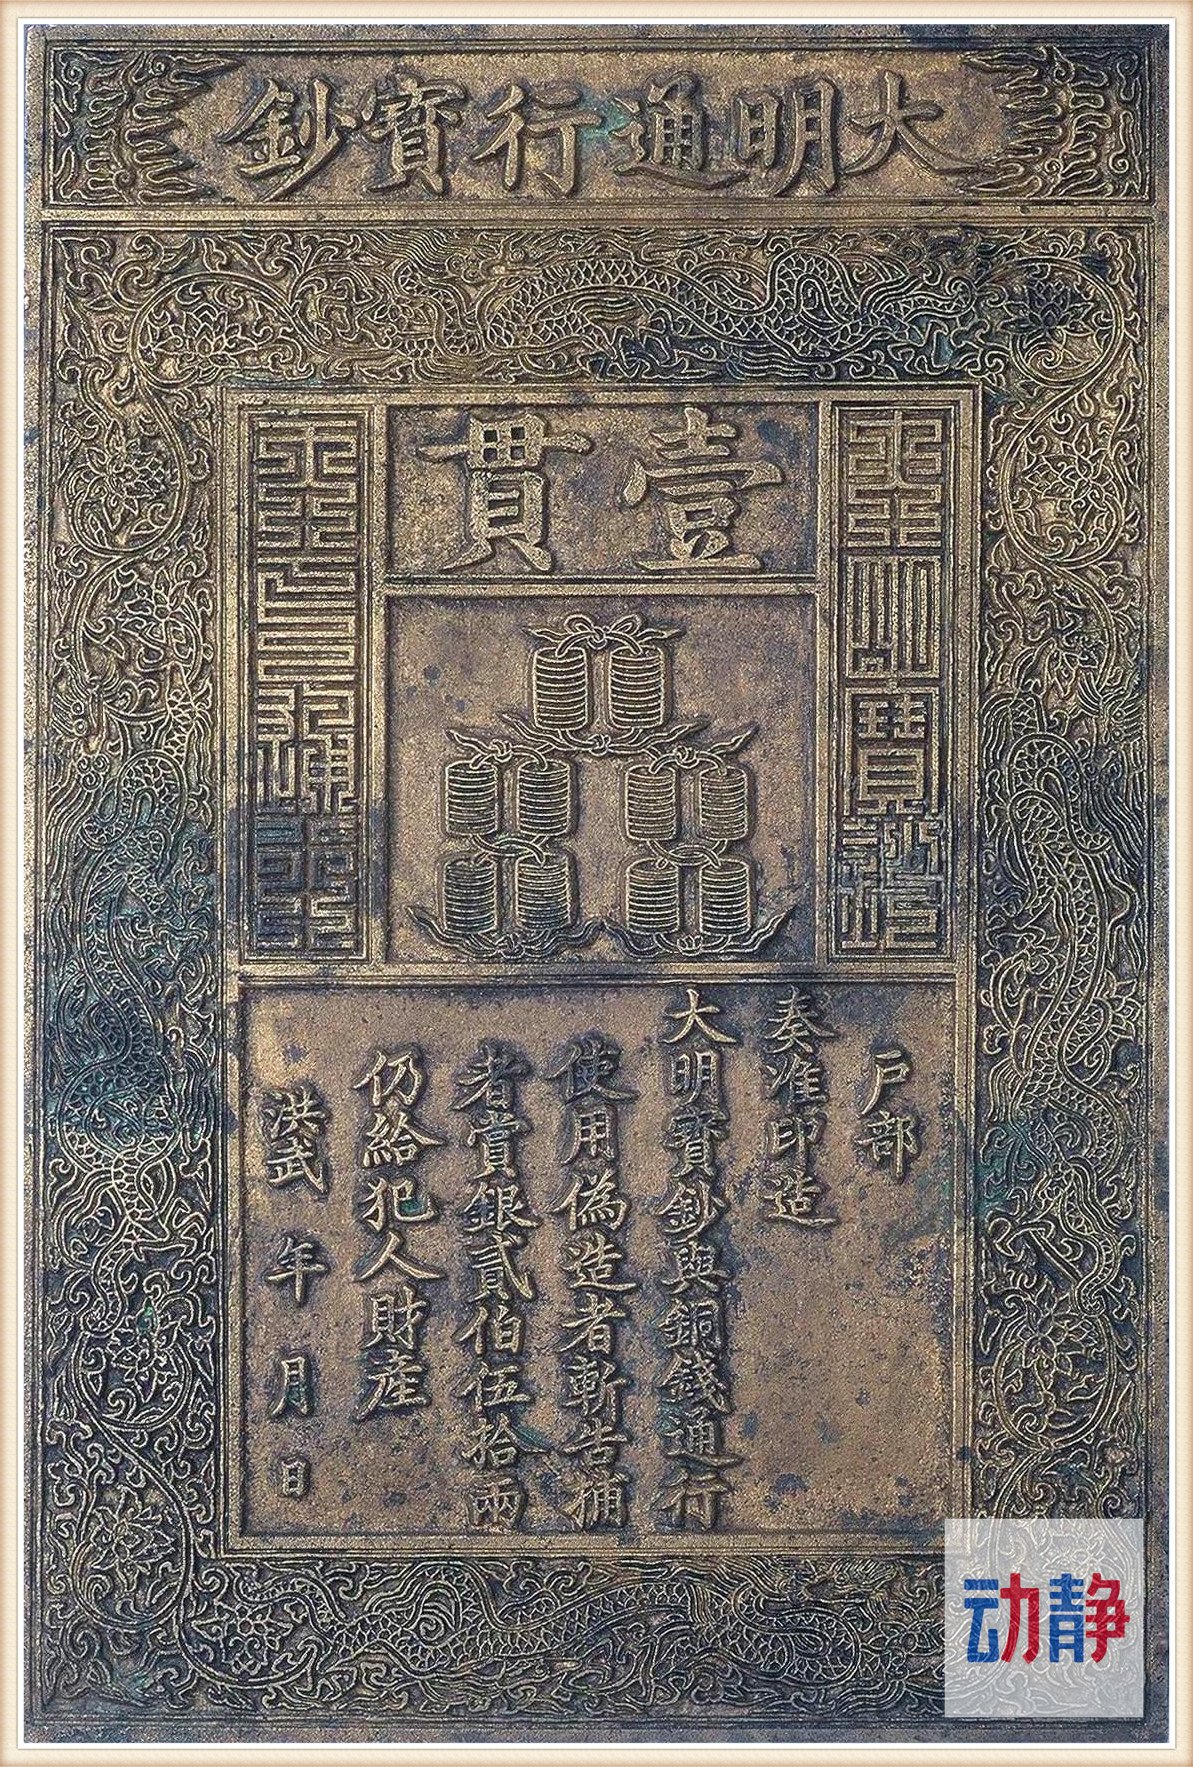 大明通行寶鈔
壹貫
大明寶鈔
天下通行
戶部
奏准印造
大明寶鈔與銅錢通行
使用偽造者斬告捕
者賞銀貳伯伍拾兩
仍給犯人財產
洪武 年 月 日
动静